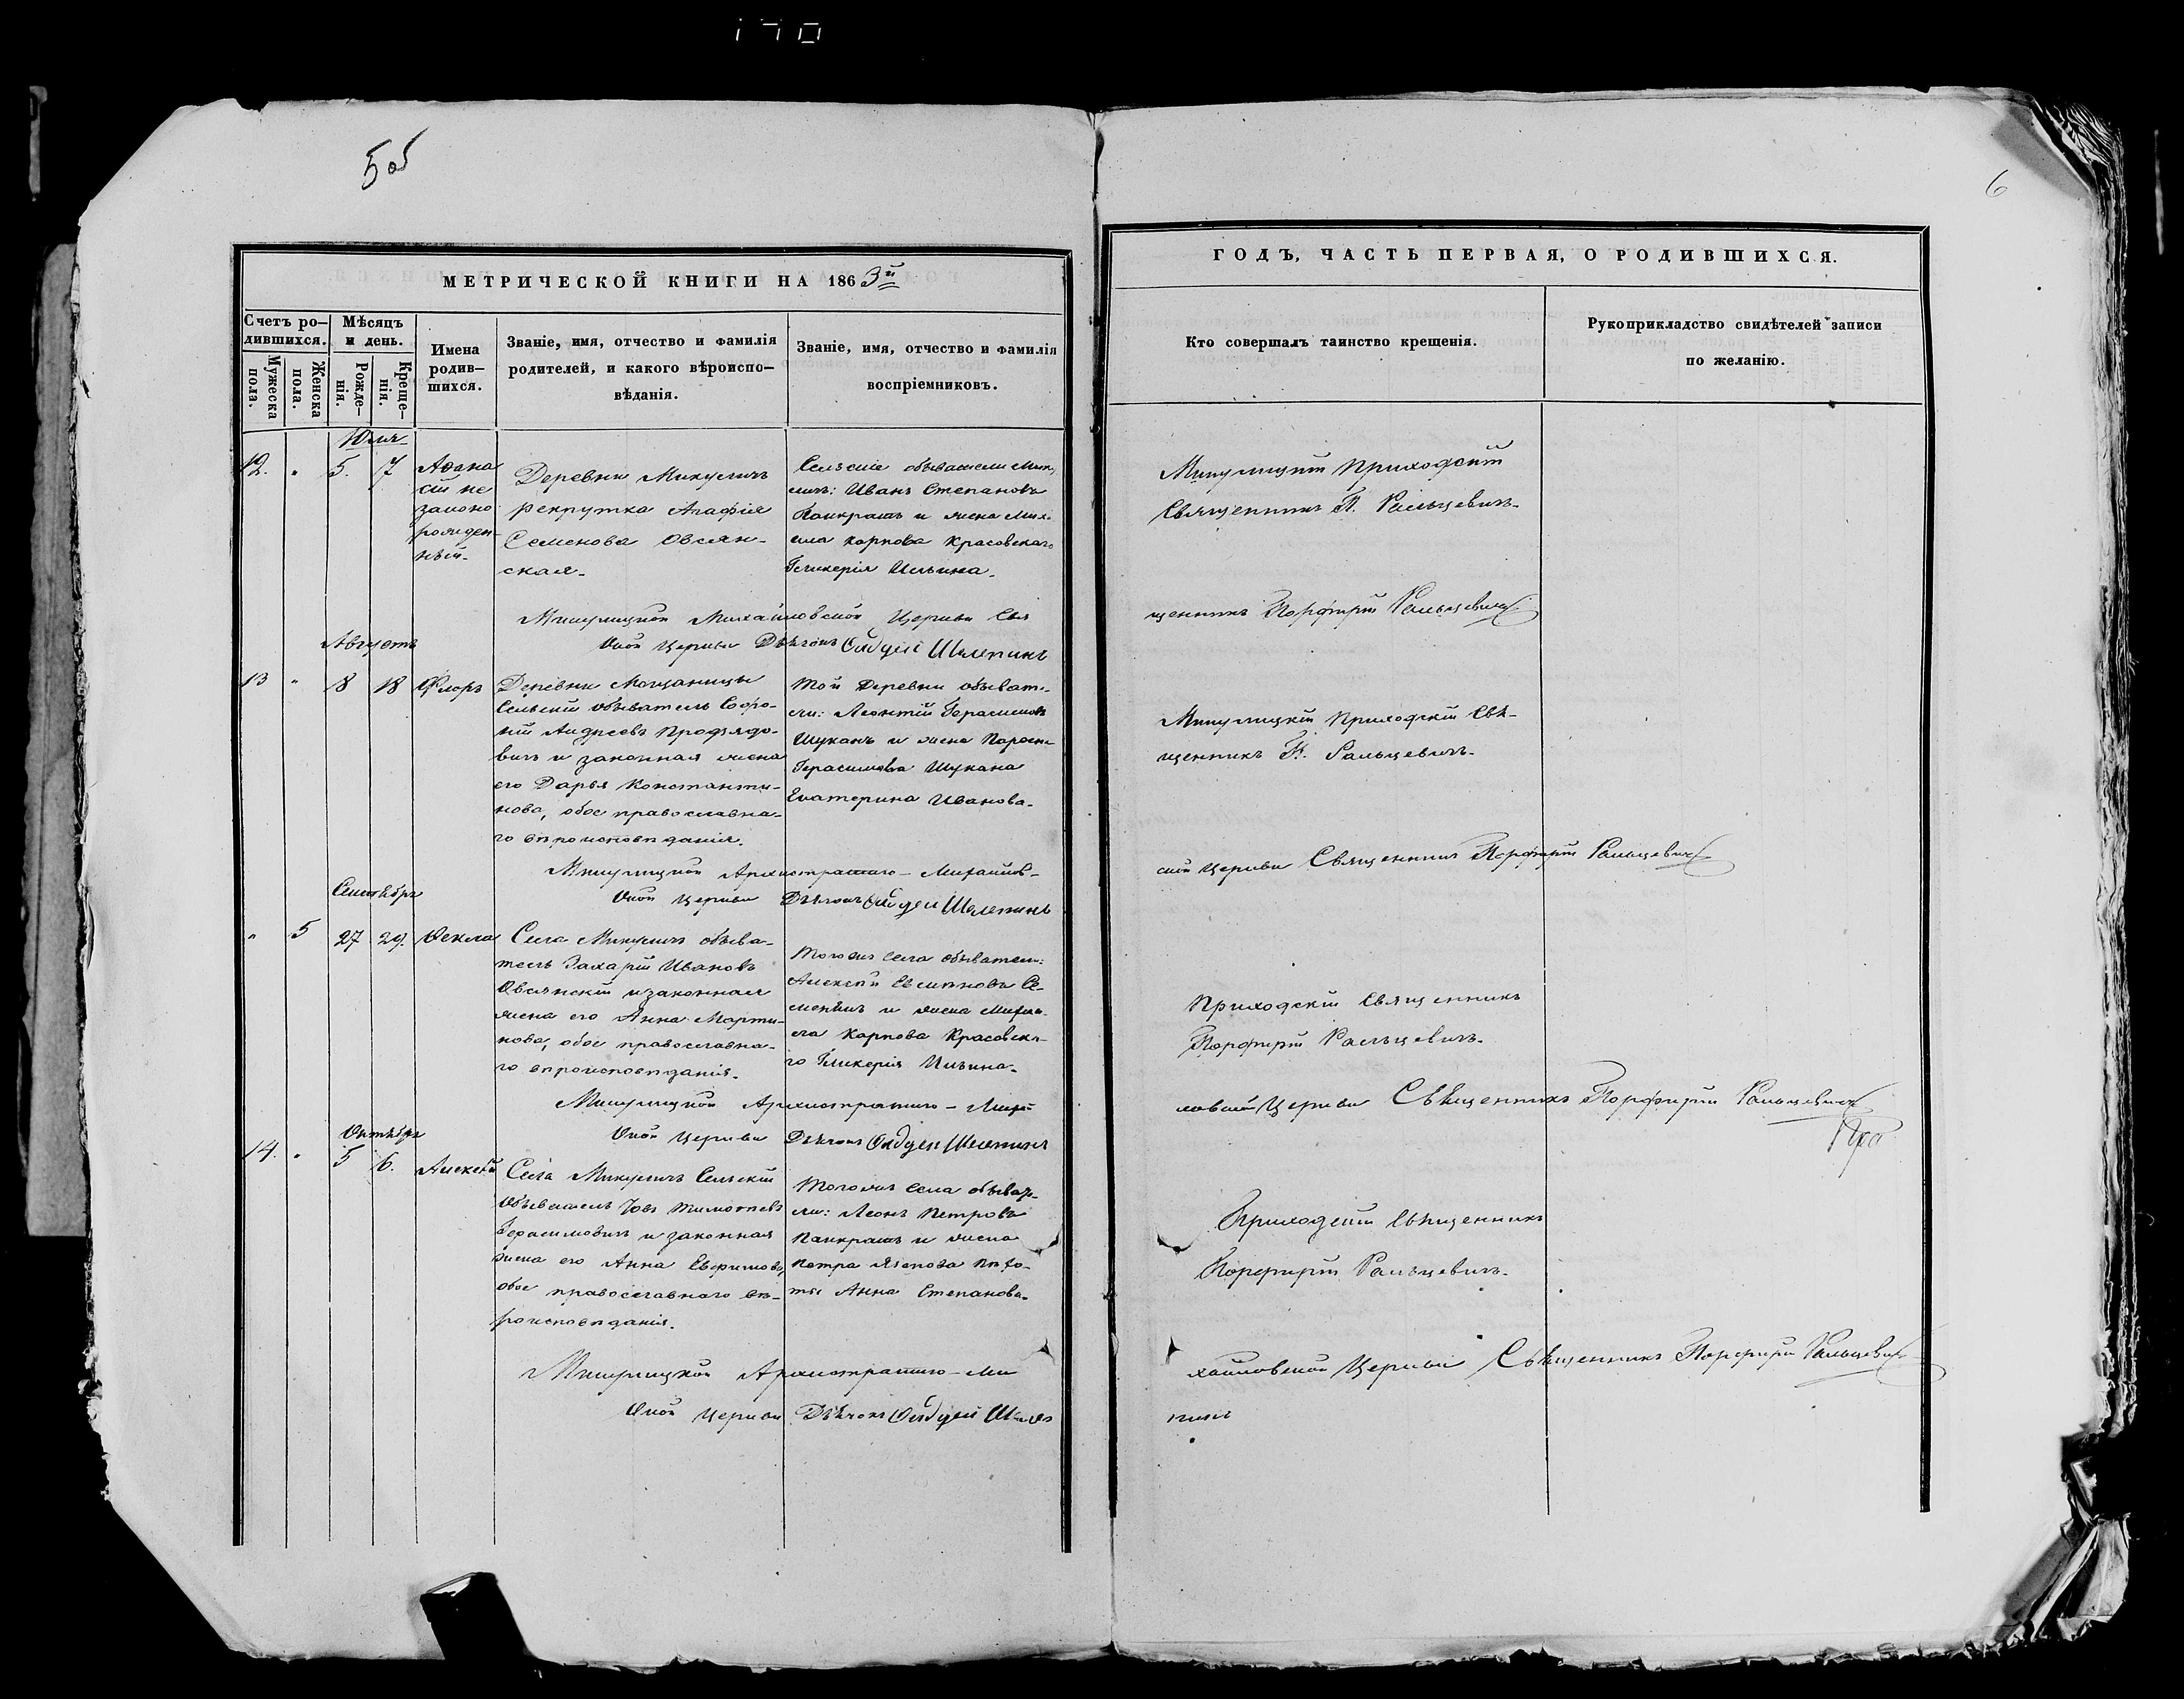 170
5 об
6
МЕТРИЧЕСКОЙ КНИГИ НА 1863й
ГОДЪ, ЧАСТЬ ПЕРВАЯ, О РОДИВШИХСЯ.
Счетъ ро-
дившихся.
Мужеска
пола.
Женска
пола.
Мѣсяцъ
и день.
Рожде-
нія.
Креще-
нія.
Имена
родив-
шихся.
Званіе, имя, отчество и фамилія
родителей, и какого вѣроиспо-
вѣданія.
Званіе, имя, отчество и фамилія
воспріемниковъ.
Кто совершалъ таинство крещенія.
Рукоприкладство свидѣтелей записи
по желанію.
Юля
12. " 5. 7
Аѳана
сій не
законо
рожден-
ный.
Деревни Микуличъ
рекрутка Агафія
Семенова Овсян-
ская.
Сельскіе обыватели Мику
личъ: Иванъ Степановъ
Панкратъ и жена Миха
ила Карпова Красовскаго
Гликерія Ильина.
Микулицкій Приходскій
Священникъ П. Ральцевичъ.
Микулицкой Михайловской Церкви Свя
щенникъ Порфирій Ральцевичъ
Оной Церкви Дьячокъ Шелепинъ
Августъ
13 " 18 18 Флоръ
Деревни Мощаницы
Сельскій обыватель Софро-
ній Андреевъ
вичъ и законная жена
его Дарья Константи-
нова, обое православна-
го вѣроисповѣданія.
Той Деревни обывате-
ли: Леонтій Герасимовъ
Шуканъ и жена
Герасимова Шукана
Екатерина Иванова.
Микулицкій Приходскій Свя-
щенникъ П. Ральцевичъ.
Микулицкой Архистратиго-Михайлов-
ской Церкви Священникъ Порфирій Ральцевичъ
Оной Церкви Дьячокъ Шелепинъ
Сентябрь
" 5 27 29. Ѳекла
Села Микуличъ обыва-
тель Захарій Ивановъ
Овсянскій и законная
жена его Анна Марти-
нова, обое православна-
го вѣроисповѣданія.
Тогожъ села обыватели:
Алексѣй Се-
и жена Михаи-
ла Карпова Красовска-
го Гликерія Ильина.
Приходскій Священникъ
Порфирій Ральцевичъ.
Микулицкой Архистратиго-Михай
ловской Церкви Священникъ Порфирій Ральцевичъ
Оной Церкви Дьячокъ Шелепинъ
Октябрь
14. " 5 6. Алексѣй
Села Микуличъ Сельскій
Обыватель Іовъ Тимоѳеевъ
Герасимовичъ и законная
жена его Анна Евфимова,
обое православнаго вѣ-
роисповѣданія.
Тогожъ села обывате-
ли: Леонъ Петровъ
Панкратъ и жена
Петра
Анна Степанова.
Приходскій Священникъ
Порфирій Ральцевичъ.
Микулицкой Архистратиго-Ми
хайловской Церкви Священникъ Порфирій Ральцевичъ
Оной Церкви Дьячокъ Шеле
пинъ